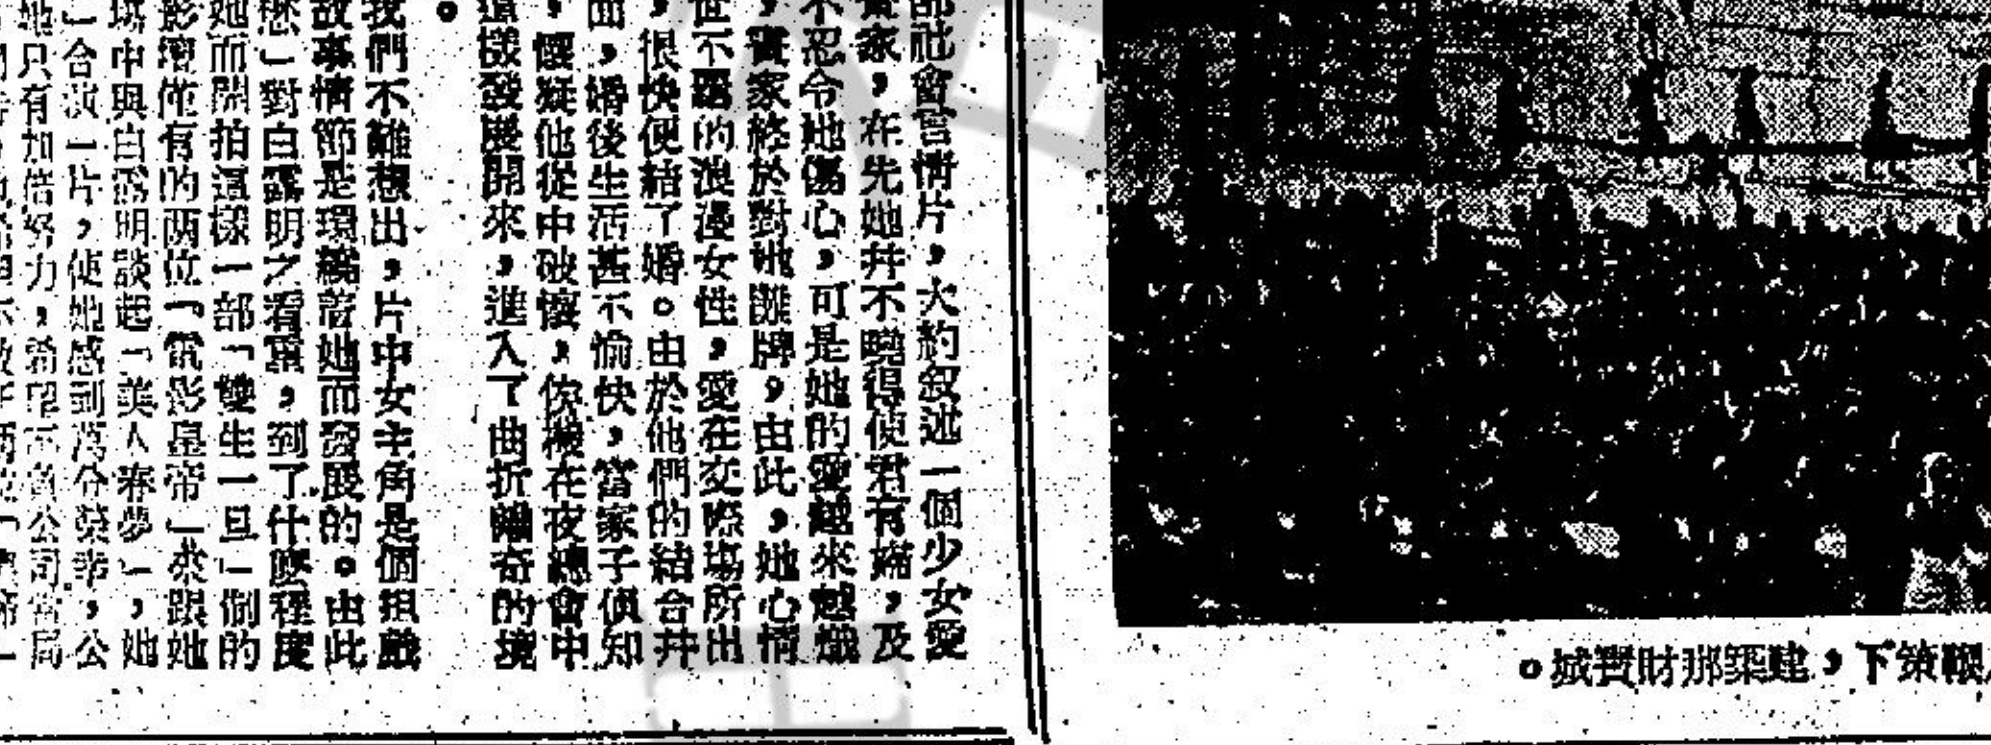 部社會言情片，大約叙述一個少女愛
賓家，在先她并不曉得使君有婦，及
不忍令她傷心，可是她的愛越來越熾
，賓家終於對她攤牌，由此，她心情
世不羈的浪漫女性，愛在交際塲所出
，很快便結了婚。由於他們的結合井
面，婚後生活甚不愉快，當家子偵知
，懷疑他從中破懷，伺機在夜總會中
這樣發展開來，進入了曲折離奇的境
。
我們不難想出，片中女主角是個担戲
故事情節是環繞着她而發展的。由此
愁」對白露明之看重，到了什麽程度
她而開拍這樣一部「雙生一旦」制的
影壇僅有的两位「電影皇帝」來跟她
塲中與白露明談起「美人春夢」，她
」合演一片，使她感到萬分榮幸，公
她只有加倍努力，希望 公司當局
下策 ，建築那財寳城。